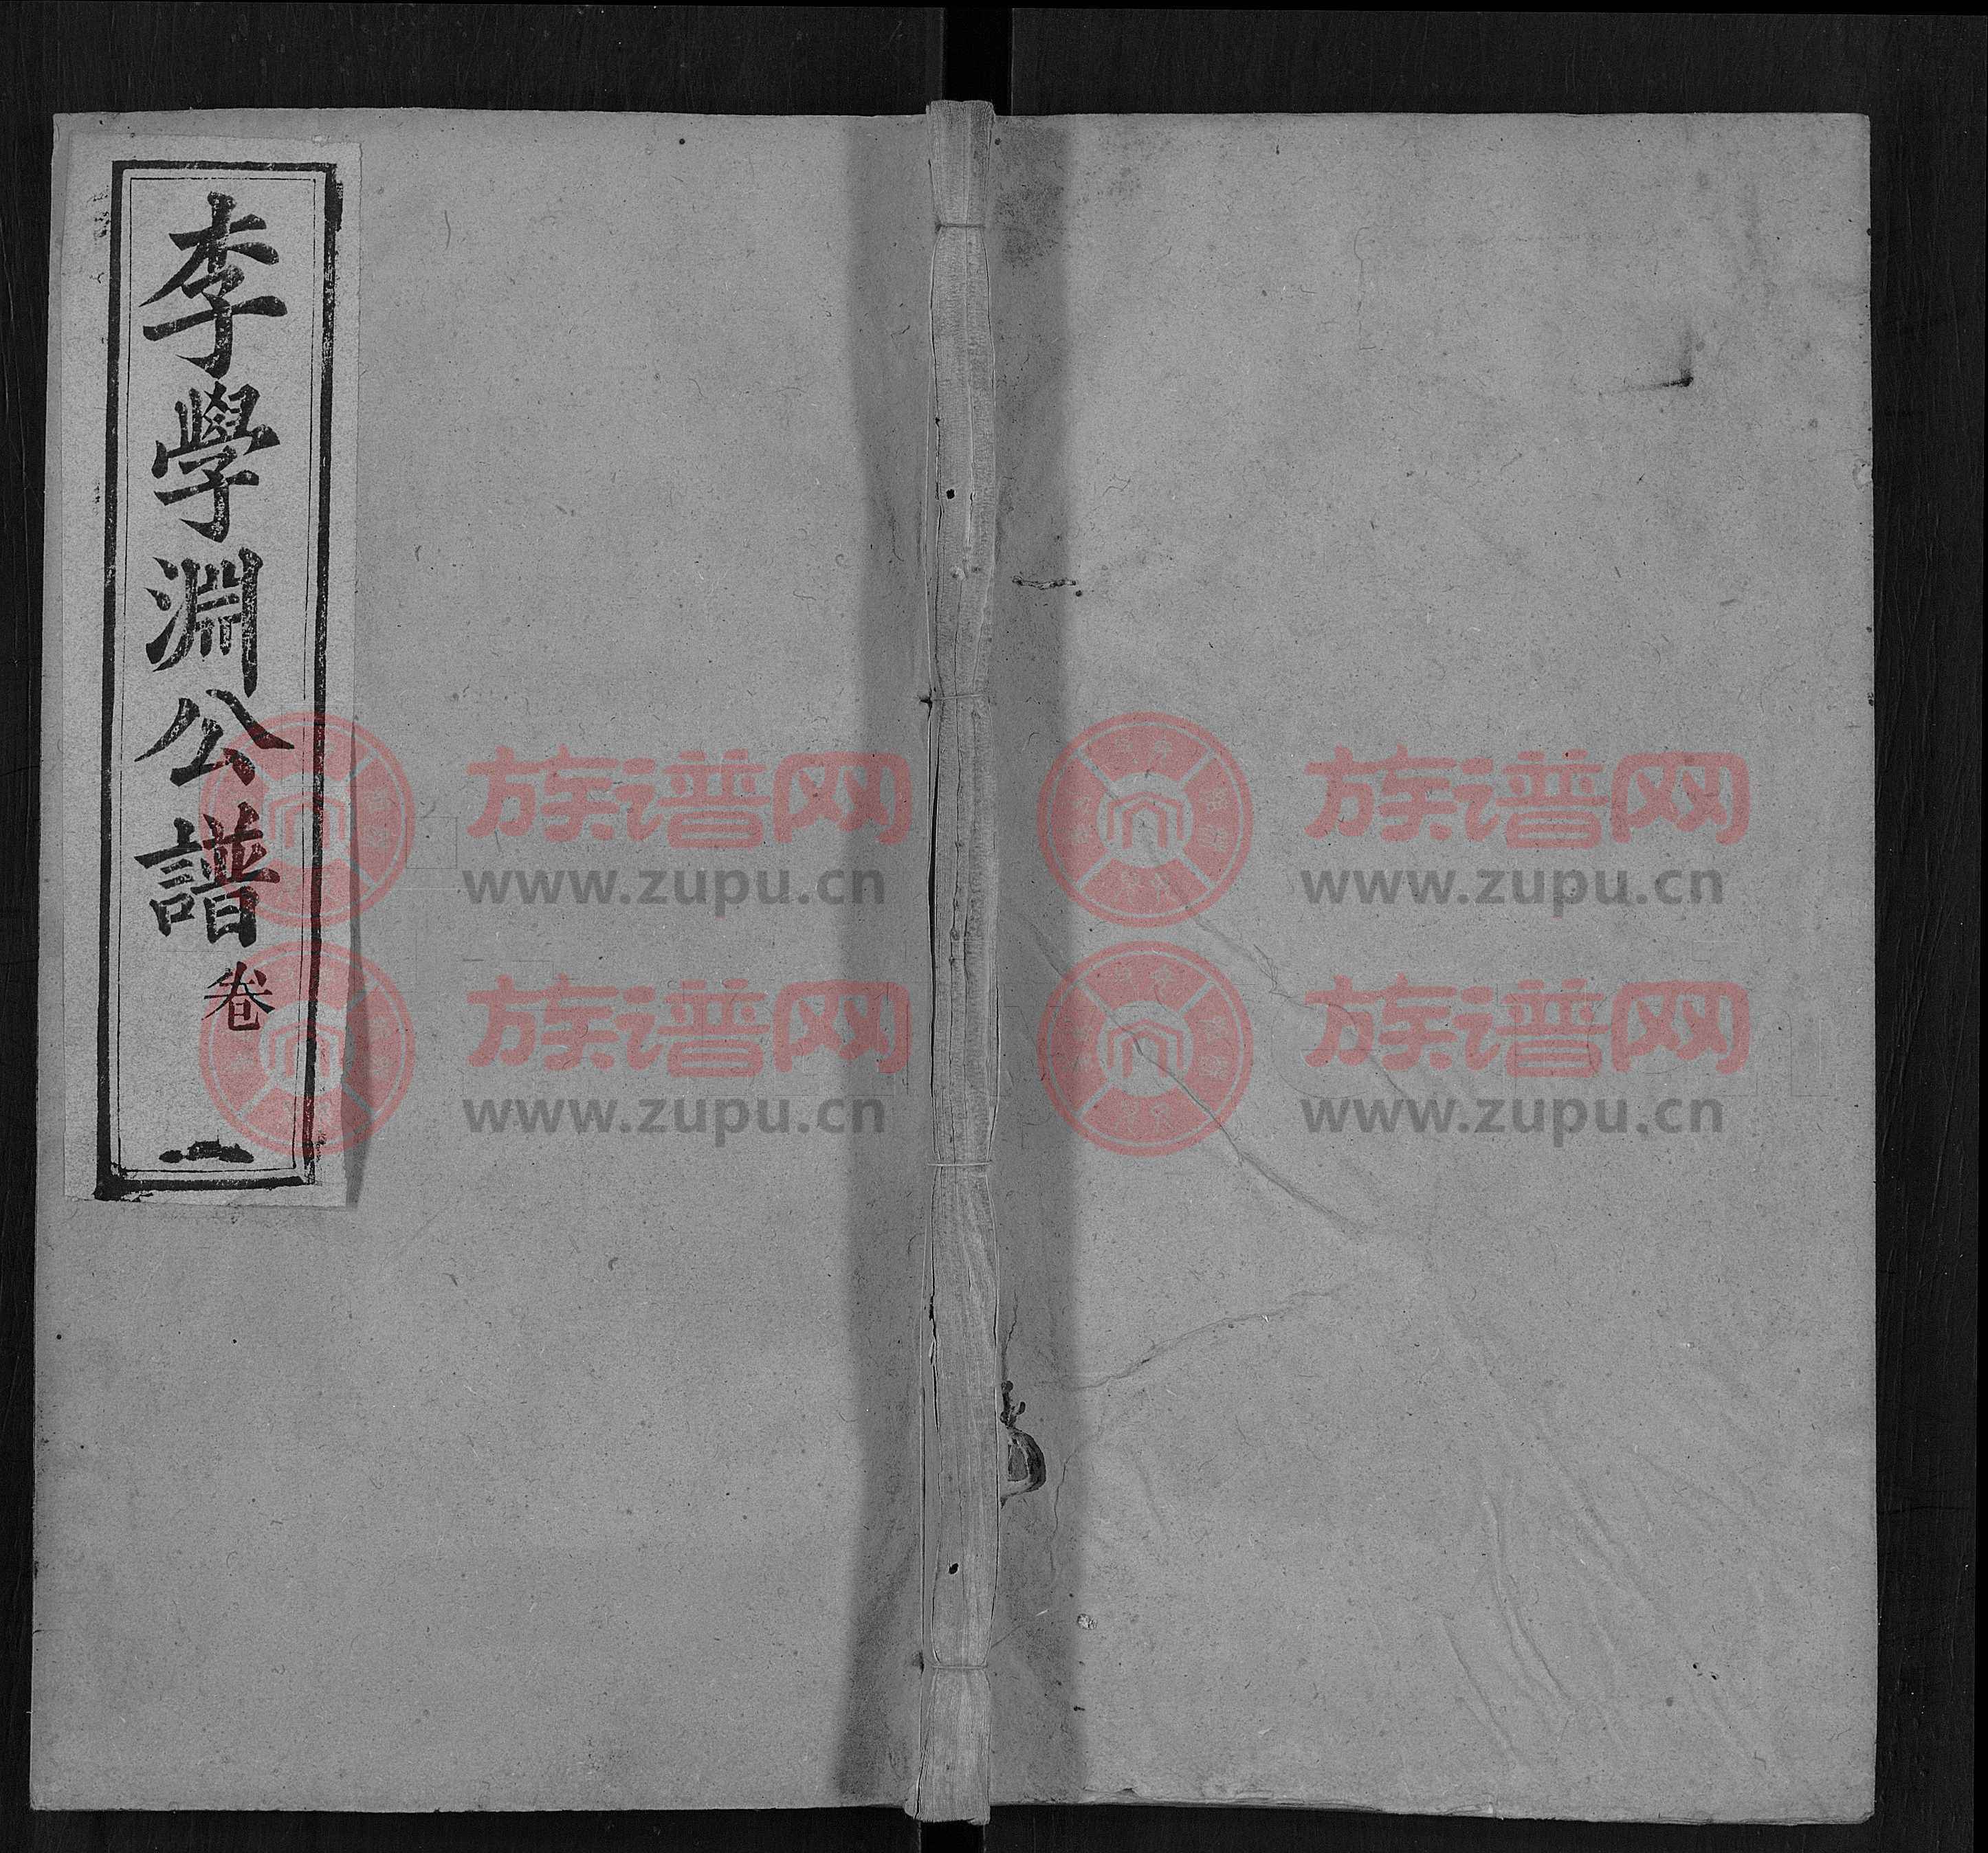 李學淵公譜卷一
族谱网
www.zupu.cn
族谱网
www.zupu.cn
族谱网
www.zupu.cn
族谱网
www.zupu.cn